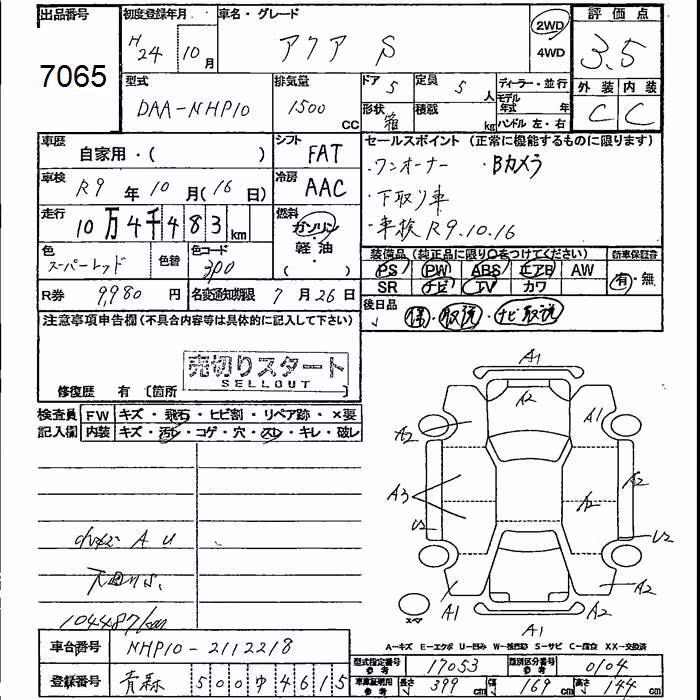 出品番号 7065
初度登録年月 H24 10月
車名・グレード アクア S
2WD
4WD
評価点 3.5
外装 C 内装 C
型式 DAA-NHP10
排気量 1500 CC
ドア 5 定員 5 人
形状 箱 積載 kg
ディーラー・並行
モデル年式 年
ハンドル 左・右
車歴 自家用・( )
シフト FAT
車検 R9年 10月(16日)
冷房 AAC
走行 10万4千483km
燃料 ガソリン・軽油・( )
色 スーパーレッド 色替 色コード 3P0
R券 9,980円 名変通知期限 7月26日
セールスポイント (正常に機能するものに限ります)
・ワンオーナー ・Bカメラ
・下取り車
・車検R9.10.16
装備品(純正品に限り○をつけてください) 新車保証書
PS PW ABS エアB AW 有・無
SR ナビ TV カワ
後日品 保・取説・ナビ取説
注意事項申告欄(不具合内容等は具体的に記入して下さい)
売切りスタート
SELLOUT
修復歴 有 〔箇所
検査員記入欄 FW キズ・飛石・ヒビ割・リペア跡・×要
内装 キズ・汚レ・コゲ・穴・スレ・キレ・破レ
A1
A2 A1
A2
A3 A2 A2
U2 U2
A U
下回りS.
104487km
A1 A2
スペア
A1
A-キズ E-エクボ U-凹み W-補修跡 S-サビ C-腐食 XX-交換済
車台番号 NHP10-2112218
登録番号 青森 500ゆ4615
型式指定番号 参考 17053 類別区分番号 参考 0104
車庫証明用 参考 長さ 399cm 幅 169cm 高さ 144cm